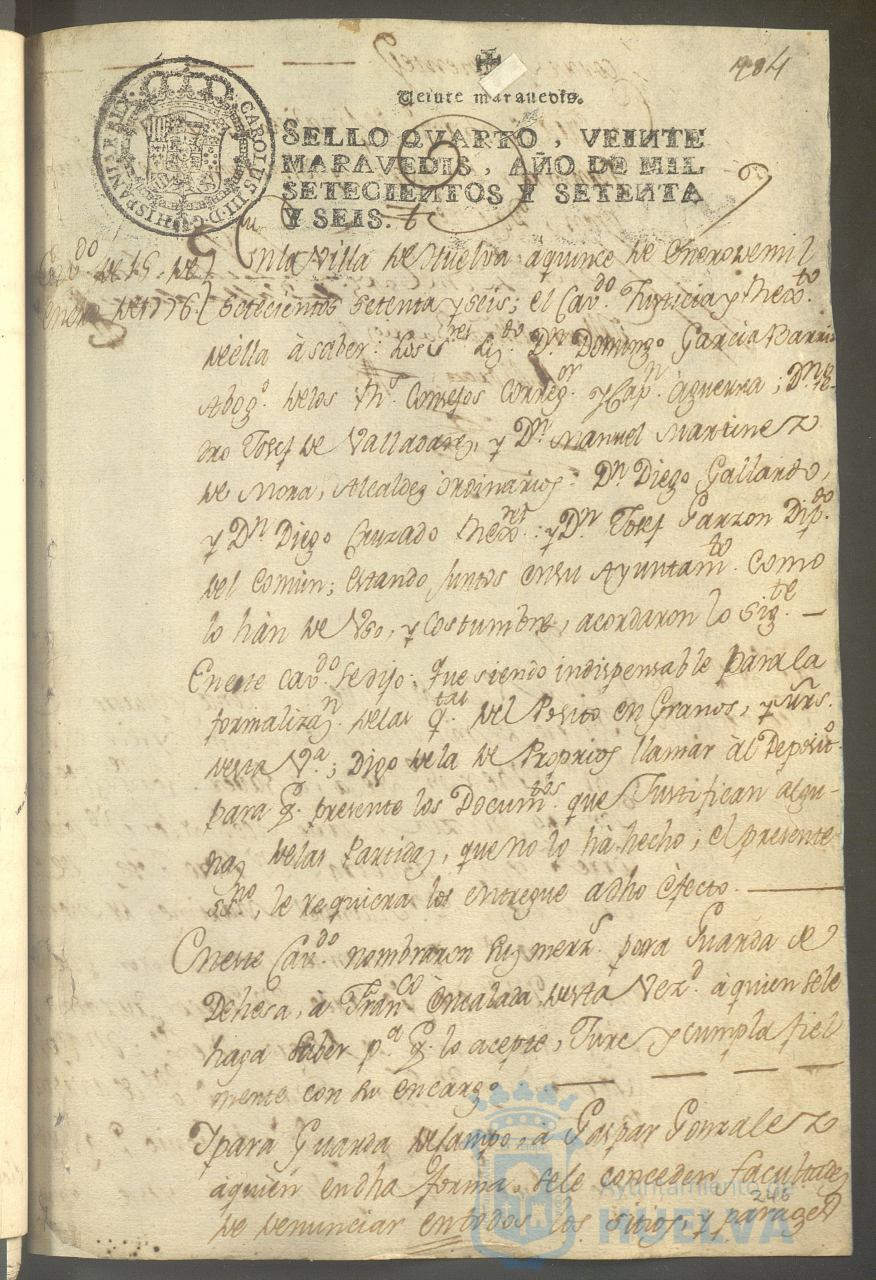 Veinte maravedis.
SELLO QVARTO, VEINTE
MARAVEDIS, AÑO DE MIL
SETECIENTOS Y SETENTA
Y SEIS.
CAROLUS III D G HISPANIAR REX
Cavdo de 15 de
Enero de 1776
En la Villa de Huelva a quince de Enero de mil
setecientos setenta y seis; el Cavdo Justicia y Rexto
de ella à saber: los Sres Lizdo Dn Domingo Garcia Barri
Abogo de los Rs Consejos Corregor y Capn àguerra; Dn Pe-
dro Josef de Valladares, y Dn Manuel Martinez
de Mora, Alcaldes ordinarios: Dn Diego Gallardo,
y Dn Diego Cruzado Rexores: y Dn Josef Garzon Dipdo
del Comun; estando juntos en su Ayuntamto como
lo hàn de Vso, y costumbre, acordaron lo sigte
En este cavdo se dijo; que siendo indispensable para la
formalizan de las qtas del Posito en Granos, y mrs.
desta Va; Digo de la de Proprios llamar àl Deposito
para q. presente los Documtos que Justifican algu-
nas de las Partidas, que no lo hà hecho; el presente
Ssno, le requiera los entregue a dho èfecto.
En este Cavdo nombraron sus merzs para Guarda de
Dehesa, à Franco Encalada desta Vezd à quien se le
haga saber pa q. lo acepte, Jure y cumpla fiel
mente con su encargo
Y para Guarda del campo, à Gaspar Gonzalez
a quien en dha forma, se le conceden facultades
de denunciar en todos los sitios, y parages
246
Ayuntamiento de
HUELVA